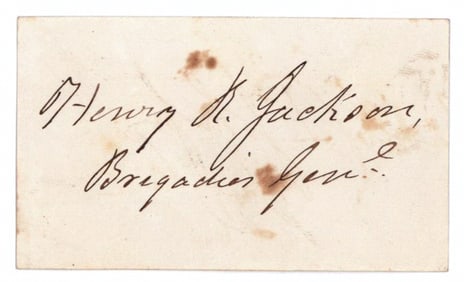 Henry R. Jackson,
Brigadier Genl.